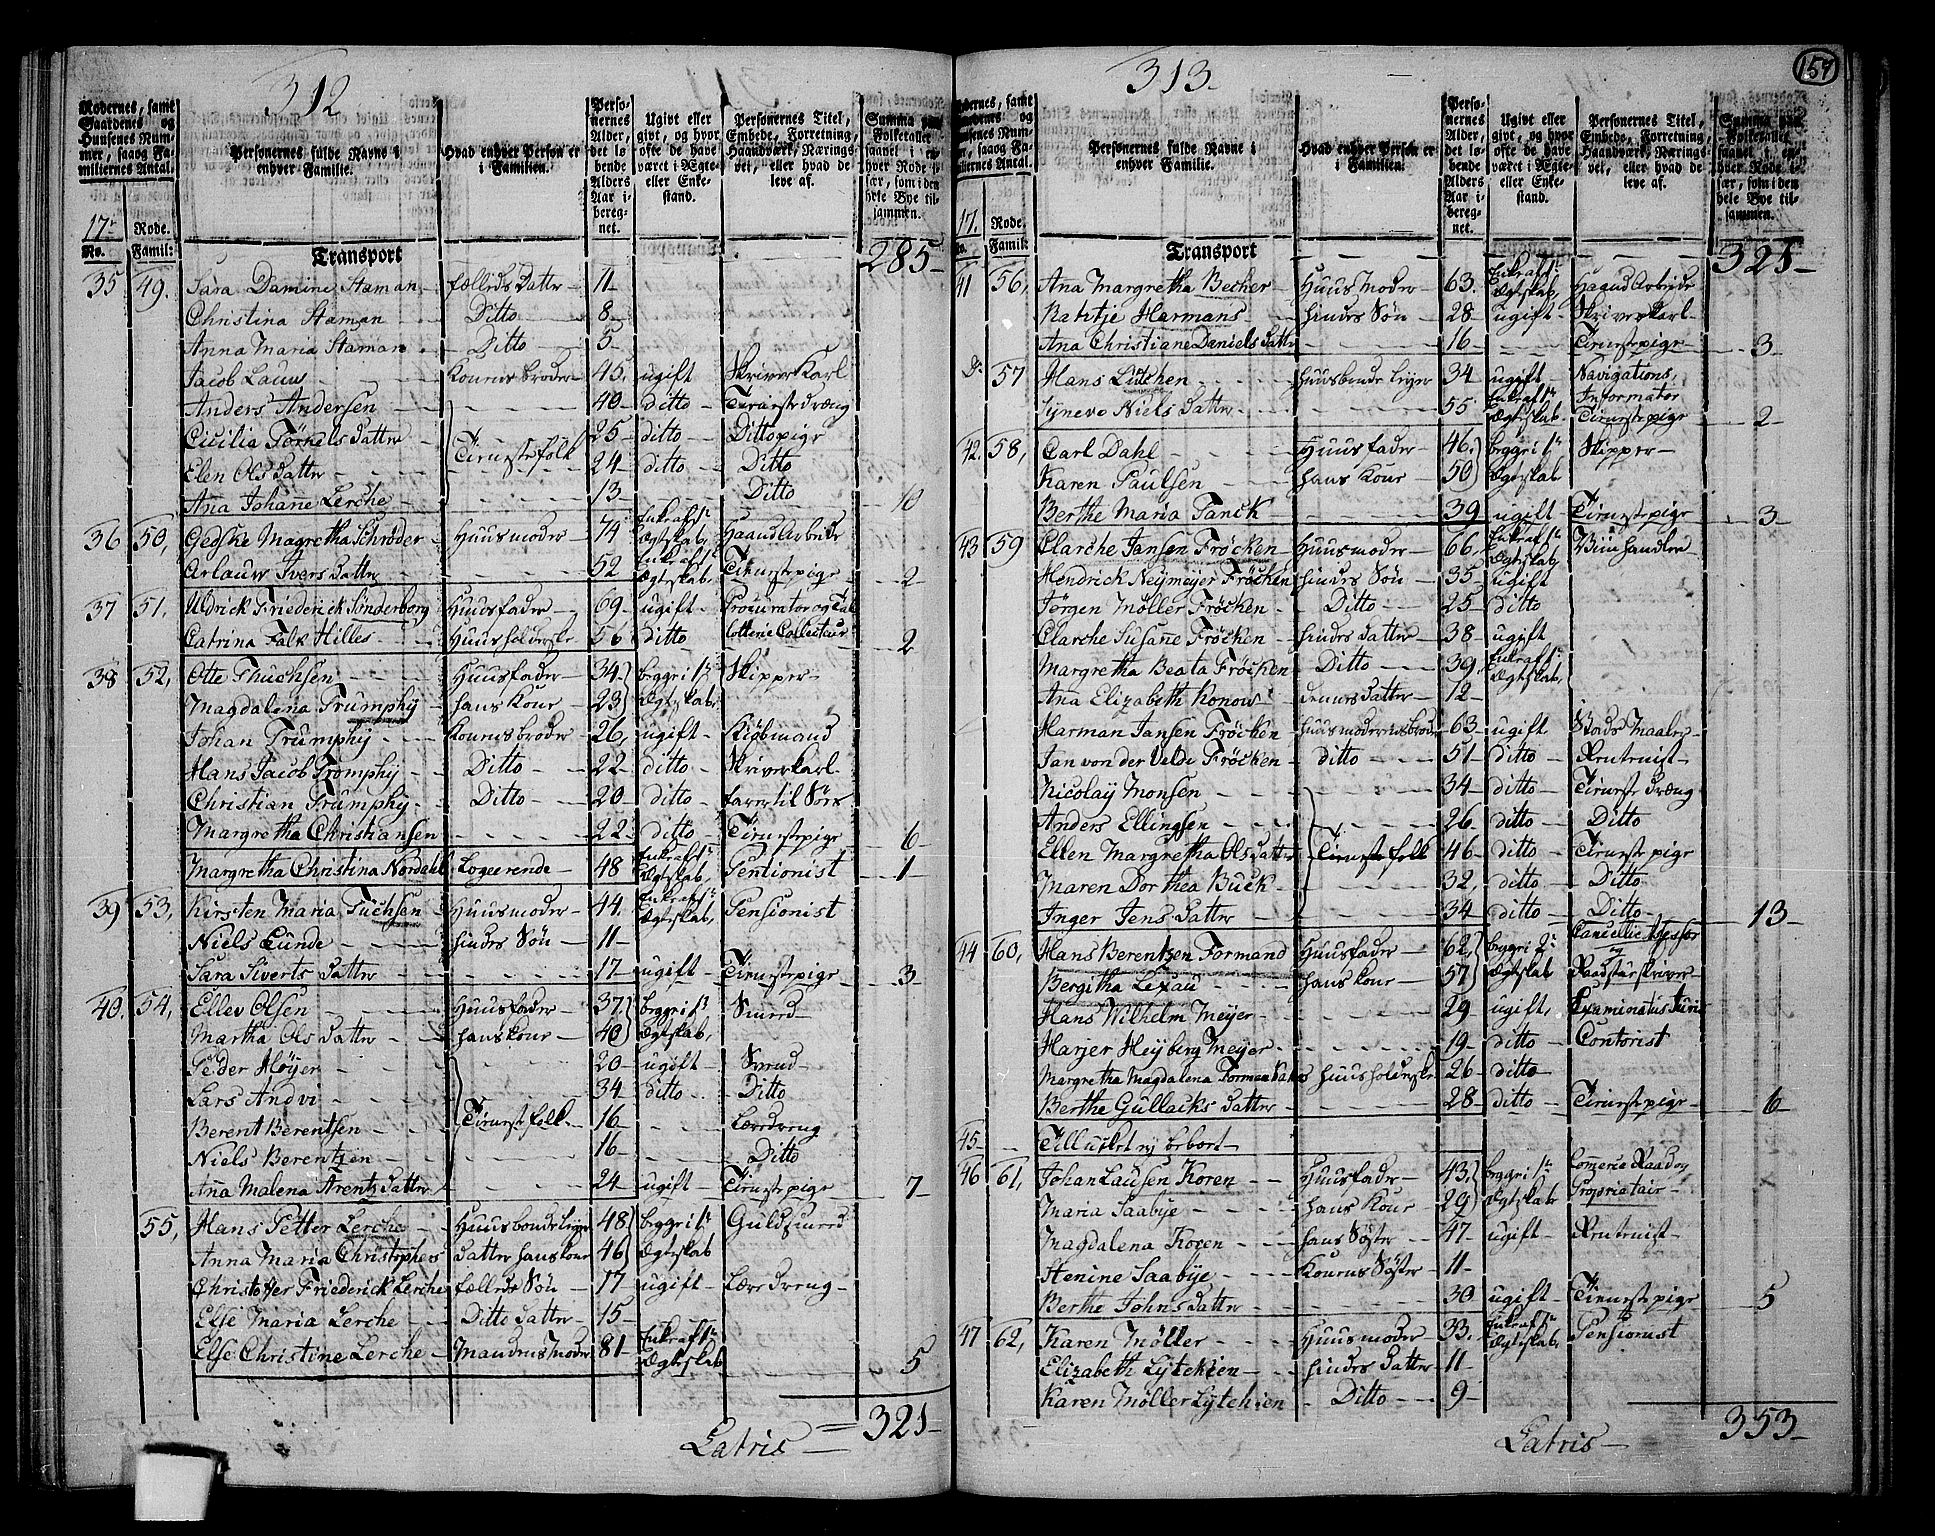 312
Rodernes, samt Gaardenes og Huusenes Nummer, saavog Familiernes Antal.
Personernes fulde Navne i enhver Familie.
Hvad enhver Person er i Familien.
Personernes Alder, det løbende Alders Aar iberegnet.
Ugivt eller givt, og hvor ofte de have været i Ægte- eller Enkestand.
Personernes Titel, Embede, Forretning, Haandværk, Næringsvei, eller hvad de leve af.
17 Rode.
No. Famil:
Transport 285
35 49. Sara Damine Staman fælleds Datter 11
Christina Staman Ditto 8
Anna Maria Staman Ditto 5
Jacob Lauw Konens broder 45 ugift Skriver Karl
Anders Andersen 40 ditto Tienistedreng
Cicilia Törkels Datter 25 ditto Ditto pige
Tienistefolk
Elen Ols Datter 24 ditto Ditto
Ana Johanne Lerche 13 Ditto 10
36 50, Gedske Magretha Schrøder Huusmoder 74 Enke af 1te Ægteskab, Haandarbeide
Arlauw Ivers Datter 52 Enke af 1te Ægteskab, Tienistepige 2
37 51. Uldrick Friederick Sönderborg Huusfader 69 ugift Procurator og Tal
Catrina Falk Hilles Huusholderske 56 ditto Lotterie Collecteur 2
38 52, Otte Thuchsen Huusfader 34 begge i 1te Skipper
Magdalena Trumphy hans Kone 23 Ægteskab,
Johan Trumphy Konens broder 26, ugift Kiøbmand
Hans Jacob Tromphy Ditto 22 ditto Skriverkarl
Christian Trumphy Ditto 20 ditto farer til Søes
Margretha Christiansen 22 ditto Tienistepige 6
Margretha Christina Nordahl Logeerende 48 Enke af 1te Ægteskab, Pentionist 1
39 53, Kirsten Maria Tüchsen Huusmoder 44. Enke af 1te Ægteskab, Pensionist
Niels Lunde hendes Søn 11
Sara Siverts Datter 17 ugift Tienistepige 3
40. 54, Ellev Olsen Huusfader 37 begge i 1te Smed
Martha Ols Datter hans kone 40 Ægteskab,
Peder Höyer 20 ugift Svend
Lars Andvi 34 ditto Ditto
Berent Berentsen Tienistfolk 16 Læredreng
Niels Berentzen 16 Ditto
Ana Malena Arentz Datter 24 ugift Tienistepige 7
55, Hans Petter Lerche Huusbonde Leyer 48 begge i 1te Guldsmed
Anna Maria Christophers Datter hans kone 46 Ægteskab
Christoffer Friederick Lerche fælleds Søn 17 ugift Læredreng
Else Maria Lerche Ditto Datter 15
Else Christine Lerche Mandens Moder 81 Enke af 1te Ægteskab 5
Latris 321
313
157
Rodernes, samt Gaardenes og Huusenes Nummer, saavog Familiernes Antal.
Personernes fulde Navne i enhver Familie.
Hvad enhver Person er i Familien.
Personernes Alder, det løbende Alders Aar iberegnet.
Ugivt eller givt, og hvor ofte de have været i Ægte- eller Enkestand.
Personernes Titel, Embede, Forretning, Haandværk, Næringsvei, eller hvad de leve af.
Summa paa Folketallet saavel i enhver Rode især, som i den hele Bye tilsammen.
17. Rode.
No. Famil:
Transport 321
41 56, Ana Margretha Becher Huus Moder 63. Enke af 1te Ægteskab, Haand Arbeide
Harmans hendes Søn 28 ugift Skriver Karl
Ana Christiane Daniels Datter 16 Tienistepige 3
Do 57 Hans Lütchen huusbonde Leyer 34 ugift Navigations, Informator
Synevo Niels Datter 55 Enke af 1te Ægteskab Tienistepige 2
42. 58, Carl Dahl Huusfader 46. begge i 1te Skipper
Karen Paulsen hans Kone 50 Ægteskab
Berthe Maria Fanck 39 ugift Tienistpige 3
43 59 Clarche Jansen Fröchen Huusmoder 66. Enke af 1te Ægteskab Viinhandler
Hendrick Neymeyer Fröchen hendes Søn 35 ugift
Jörgen Möller Fröchen Ditto 25 ditto
Clarche Susanne Fröchen hendes Datter 38 ugift
Margretha Beata Fröchen Ditto 39 Enke af 1te Ægteskab,
Ana Elizabeth Konow dennes Datter 12
Harman Jansen Fröchen huusmoderens broder 63 ugift Maaler
Jan von der Velde Fröchen ditto 51 ditto Rentenist
Nicolay Monsen 34 ditto Tienist Dreng
Anders Ellingsen 26 ditto Ditto
Ellen Margretha Ols Datter Tienistefolk 46 ditto Tienistepige
Maren Dorthea Buck 32, ditto Ditto
Inger Jens Datter 34 ditto Ditto 13
44 60, Hans Berentzen Formand Huusfader 62 begge i 2de Cancellie Assessor
Bergitha Lexau hans kone 57 Ægteskab Raadstueskriver
Hans Wilhelm Meyer 29 ugift, Examinatus Juris
Harjer Heyberg Meyer 19 ditto Contorist
Margretha Magdalena Huusholderske 26 ditto
Berthe Gullacks Datter 28 ditto Tienistepige 6
45 Tillucket ey beboet
46 61, Johan Lausen Koren Huusfader 43 begge i 1te Comerce Raad og
Maria Saabye hans Kone 29 Ægteskab Propriatair
Magdalena Koren hans Søster 47 ugift Rentenist
Henine Saabye Konens Søster 11
Berthe Johns Datter 30 ugift Tienistepige 5
47 62, Karen Möller Huusmoder 33. Enke af 1te Ægteskab, Pensionist
Elizabeth Lytchien hendes Datter 11
Karen Möller Lytchien Ditto 9
Latris 353